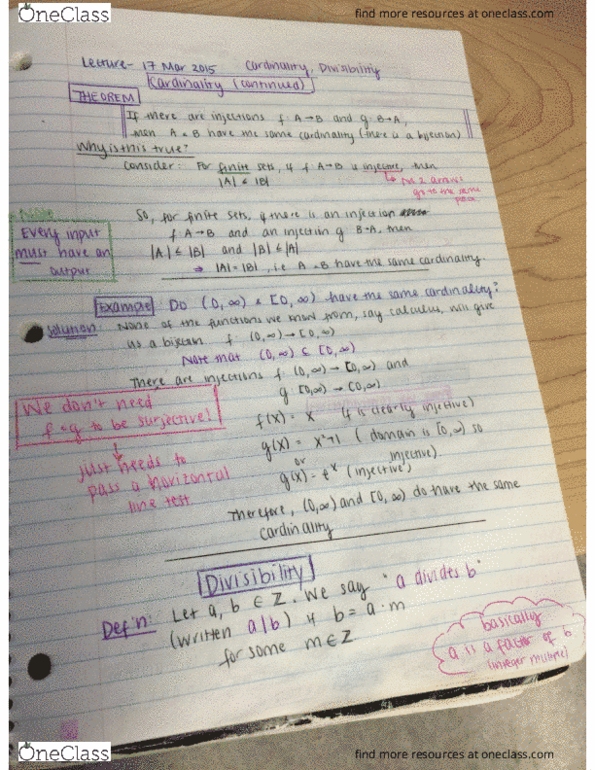 OneClass
find more resources at oneclass.com
Lecture - 17 Mar 2015 Cardinality, Divisibility
Cardinality (continued)
THEOREM
If there are injections f: A→B and g: B→A,
then A & B have the same cardinality (there is a bijection)
Why is this true?
Consider: For finite sets, if f: A→B is injective, then
|A| ≤ |B|
no 2 arrows
go to the same
place
Note
Every input
must have an
output
So, for finite sets, if there is an injection
f A→B and an injection g B→A, then
|A| ≤ |B| and |B| ≤ |A|
→ |A| = |B|, i.e. A & B have the same cardinality
Example Do (0, ∞) & [0, ∞) have the same cardinality?
Solution: None of the functions we know from, say calculus, will give
us a bijection f: (0, ∞) → [0, ∞)
Note that (0, ∞) ⊆ [0, ∞)
There are injections f: (0, ∞) → [0, ∞) and
g [0, ∞) → (0, ∞)
f(x) = x (f is clearly injective)
g(x) = x²+1 (domain is [0, ∞) so
injective)
or
g(x) = eˣ (injective)
We don't need
f & g to be surjective!
just needs to
pass a horizontal
line test
Therefore, (0, ∞) and [0, ∞) do have the same
cardinality
Divisibility
Def'n: Let a, b ∈ Z. We say "a divides b"
(written a|b) if b = a·m
for some m ∈ Z
basically
a is a factor of b
(integer multiple)
OneClass
find more resources at oneclass.com